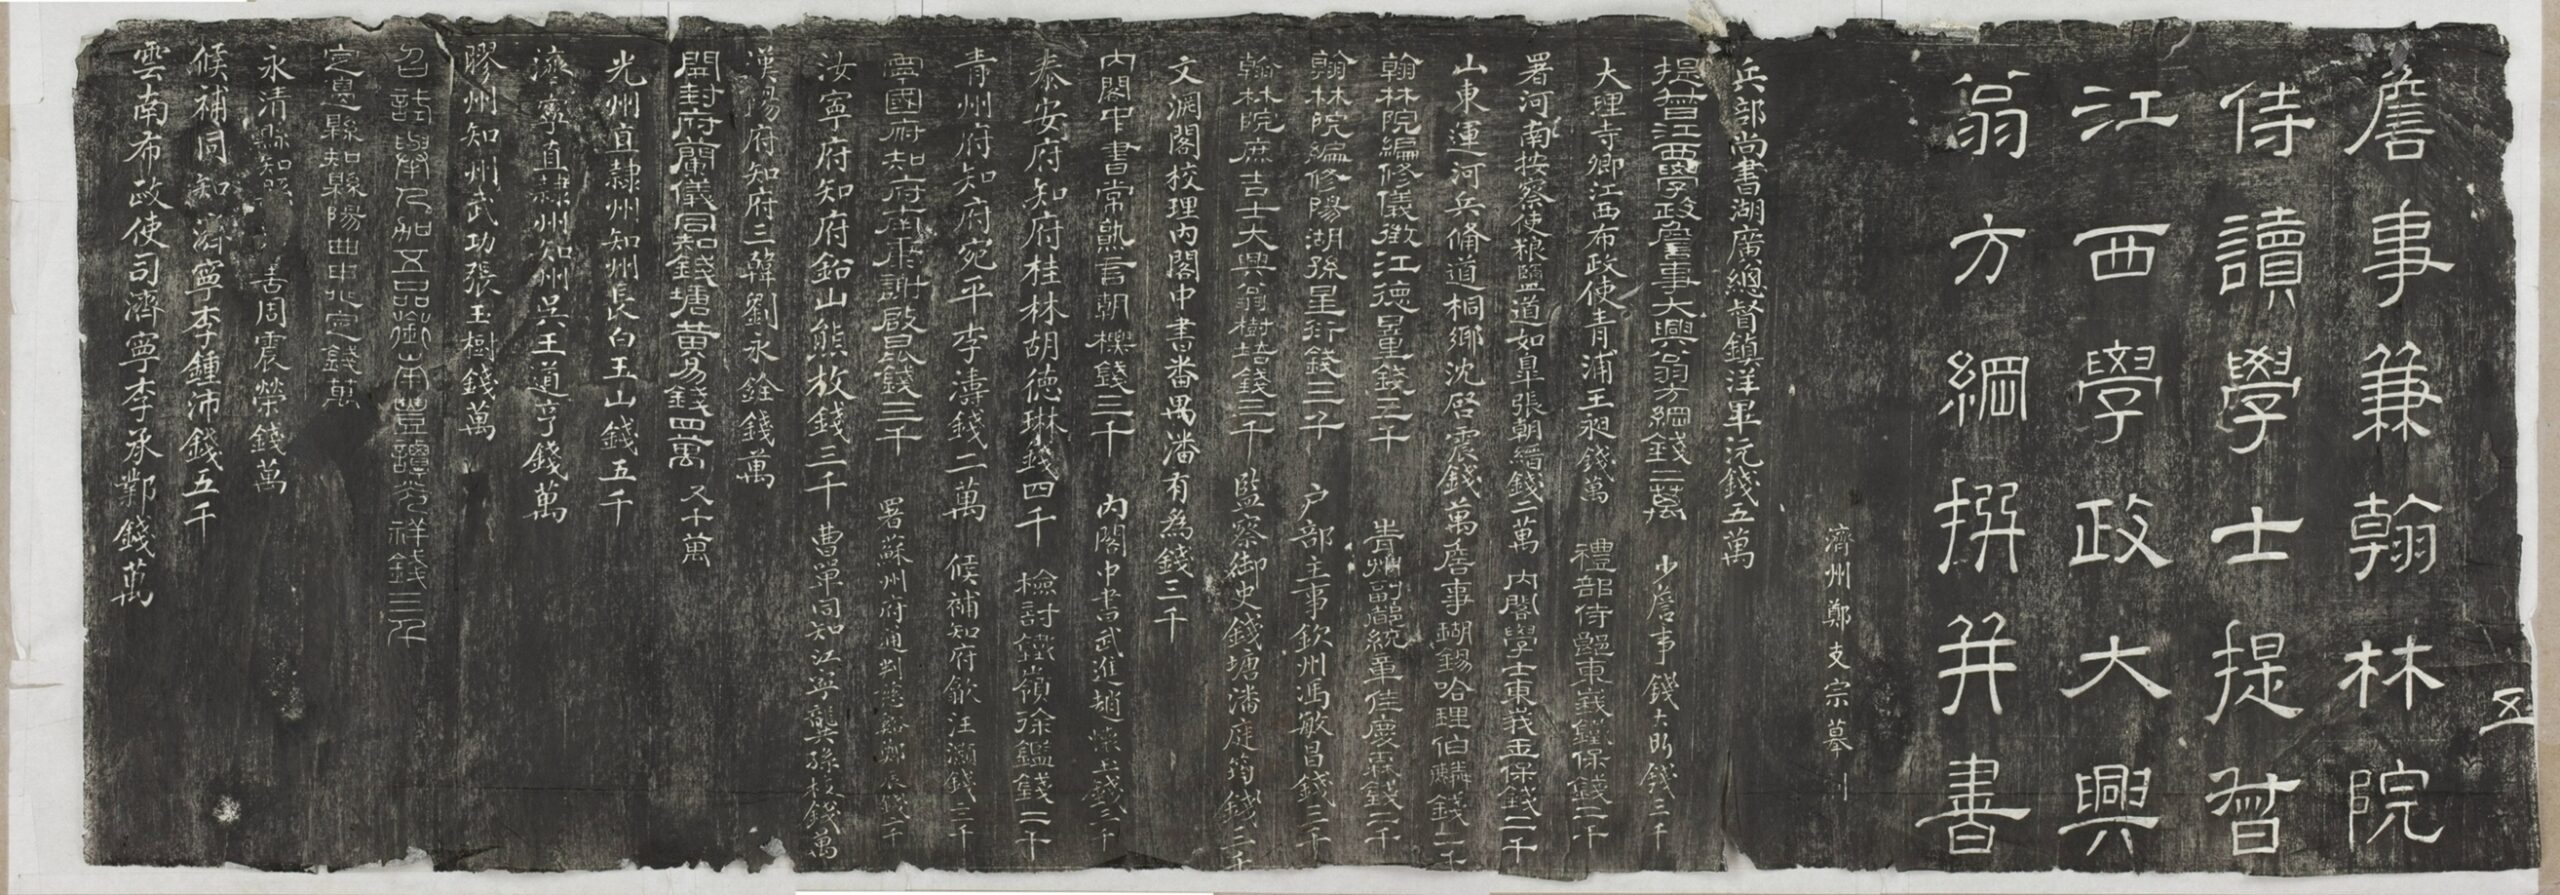 五
詹事兼翰林院
侍讀學士提督
江西學政大興
翁方綱撰并書
濟州鄭支宗摹刊
兵部尚書湖廣總督鎮洋畢沅錢五萬
提督江西學政詹事大興翁方綱錢二萬 少詹事錢大昕錢三千
大理寺卿江西布政使青浦王昶錢萬 禮部侍郎東鐵保錢二千
署河南按察使粮鹽道如皐張朝縉錢二萬 內閣學士東義金保錢二千
山東運河兵備道桐鄉沈启震錢萬 詹事錫哈理伯麟錢二千
翰林院編修儀徵江德量錢三千 貴州副都統章佳慶霖錢二千
翰林院編修陽湖孫星衍錢三千 户部主事欽州馮敏昌錢三千
翰林院庶吉士大興翁樹培錢三千 監察御史錢塘潘庭筠錢三千
文淵閣校理内閣中書番禺潘有為錢三千
内閣中書常熟言朝楪錢三千 内閣中書武進趙懷玉錢三千
泰安府知府桂林胡德琳錢四千 檢討鐵嶺徐鑑錢二千
青州府知府宛平李濤錢二萬 候補知府歙汪灝錢三千
寧國府知府南康謝啟昆錢三千 署蘇州府通判慈谿鄭辰錢二千
汝寧府知府鉛山熊枚錢三千 曹單同知江寧龔孫枝錢萬
漢陽府知府三韓劉永銓錢萬
開封府蘭儀同知錢塘黄易錢四萬 又十萬
光州直隸州知州長白王山錢五千
濟寧直隸州知州吳王道亨錢萬
膠州知州武功張玉樹錢萬
召試舉人加五品銜譚光祥錢三千
定息縣知縣陽曲申錢萬
永清縣知縣善周震榮錢萬
候補同知濟寧李鍾沛錢五千
雲南布政使司濟寧李承鄴錢萬